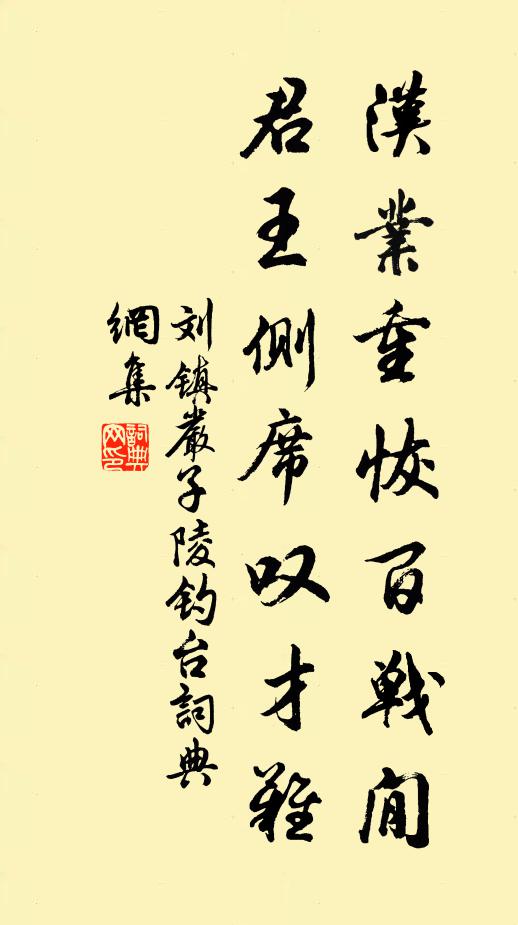 漢業重恢百戦间
君王側席叹才難
刘镇嚴子陵钓台詞典
網集
詞典
网印